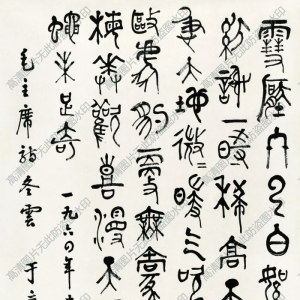 雪壓冬云白絮
紛謝一時稀高天
急大地微〻暖气吹
驅虎豹更無豪
梅華歡喜漫天
蠅未足奇 一九六四年
毛主席詩冬雲 于